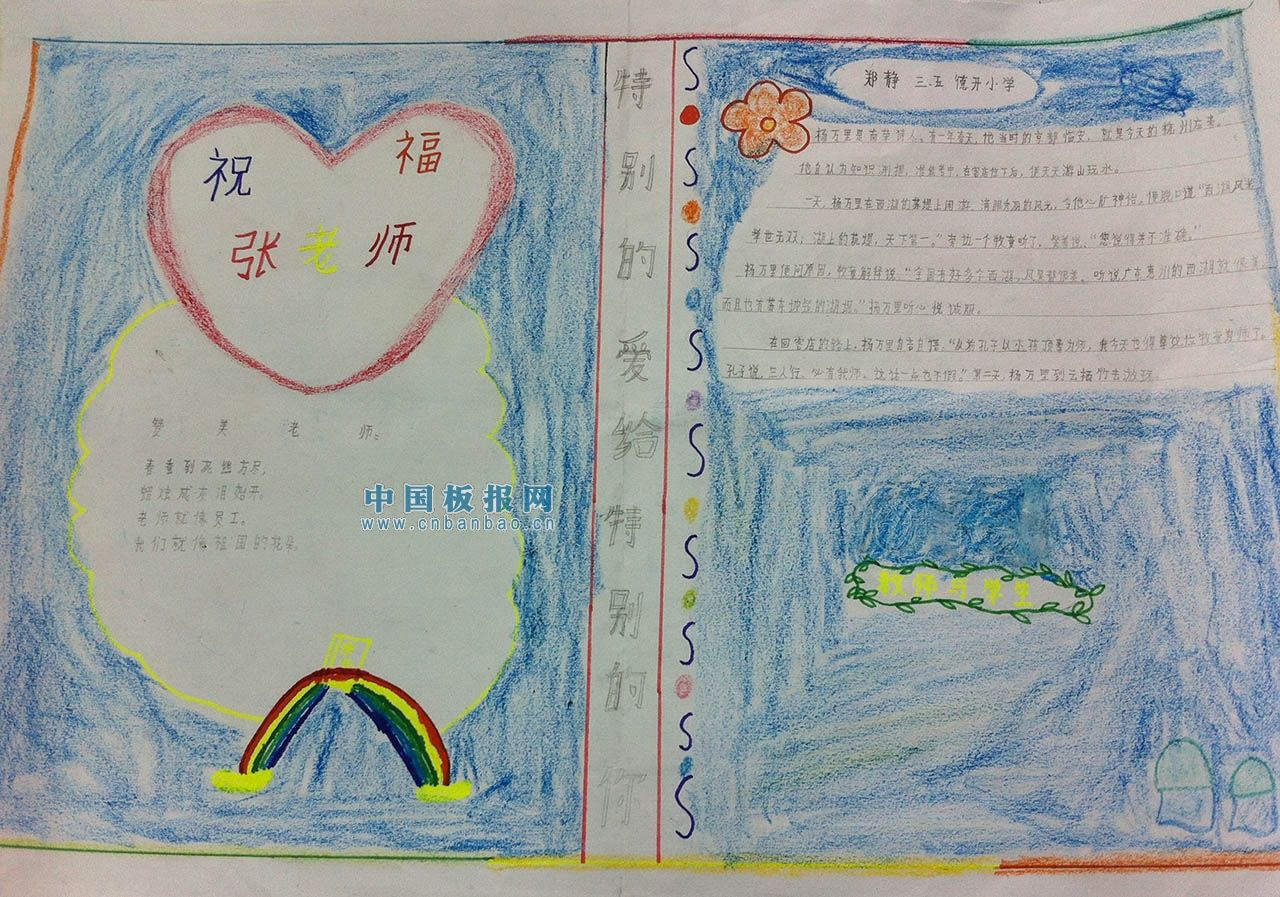 祝福
张老师
赞美老师。
春蚕到死丝方尽,
蜡炬成灰泪始干。
老师就像员工。
我们就像祖国的花朵
中国板报网
www.cnbanbao.cn
特别的爱给特别的你
郑静 三.五 德开小学
杨万里是南宋诗人、有一年春天,他当时的京都临安,就是今天的杭州
他自认为知识渊博,准备考中,在客店住下后,便天天游山玩水。
一天,杨万里在西湖的葛堤上闲游、清丽秀美的风光,令他心旷神怡。便脱口道“西湖风光
举世无双,湖上的葛堤,天下第一。”旁边一个牧童听了,笑着说,“您说得并不准确。”
杨万里便问原因,牧童解释说,“全国有好多个西湖,风景都很美。听说广东惠州的西湖就很美,
而且也有苏东坡的湖堤。”杨万里听心悦诚服。
在回客店的路上,杨万里自言自语,“从前孔子以小孩项橐为师,我今天也得拜这位牧童为师了。
孔子说,三人行、必有我师,这话一点也不假。”第二天,杨万里到云栖竹去游玩
教师与学生